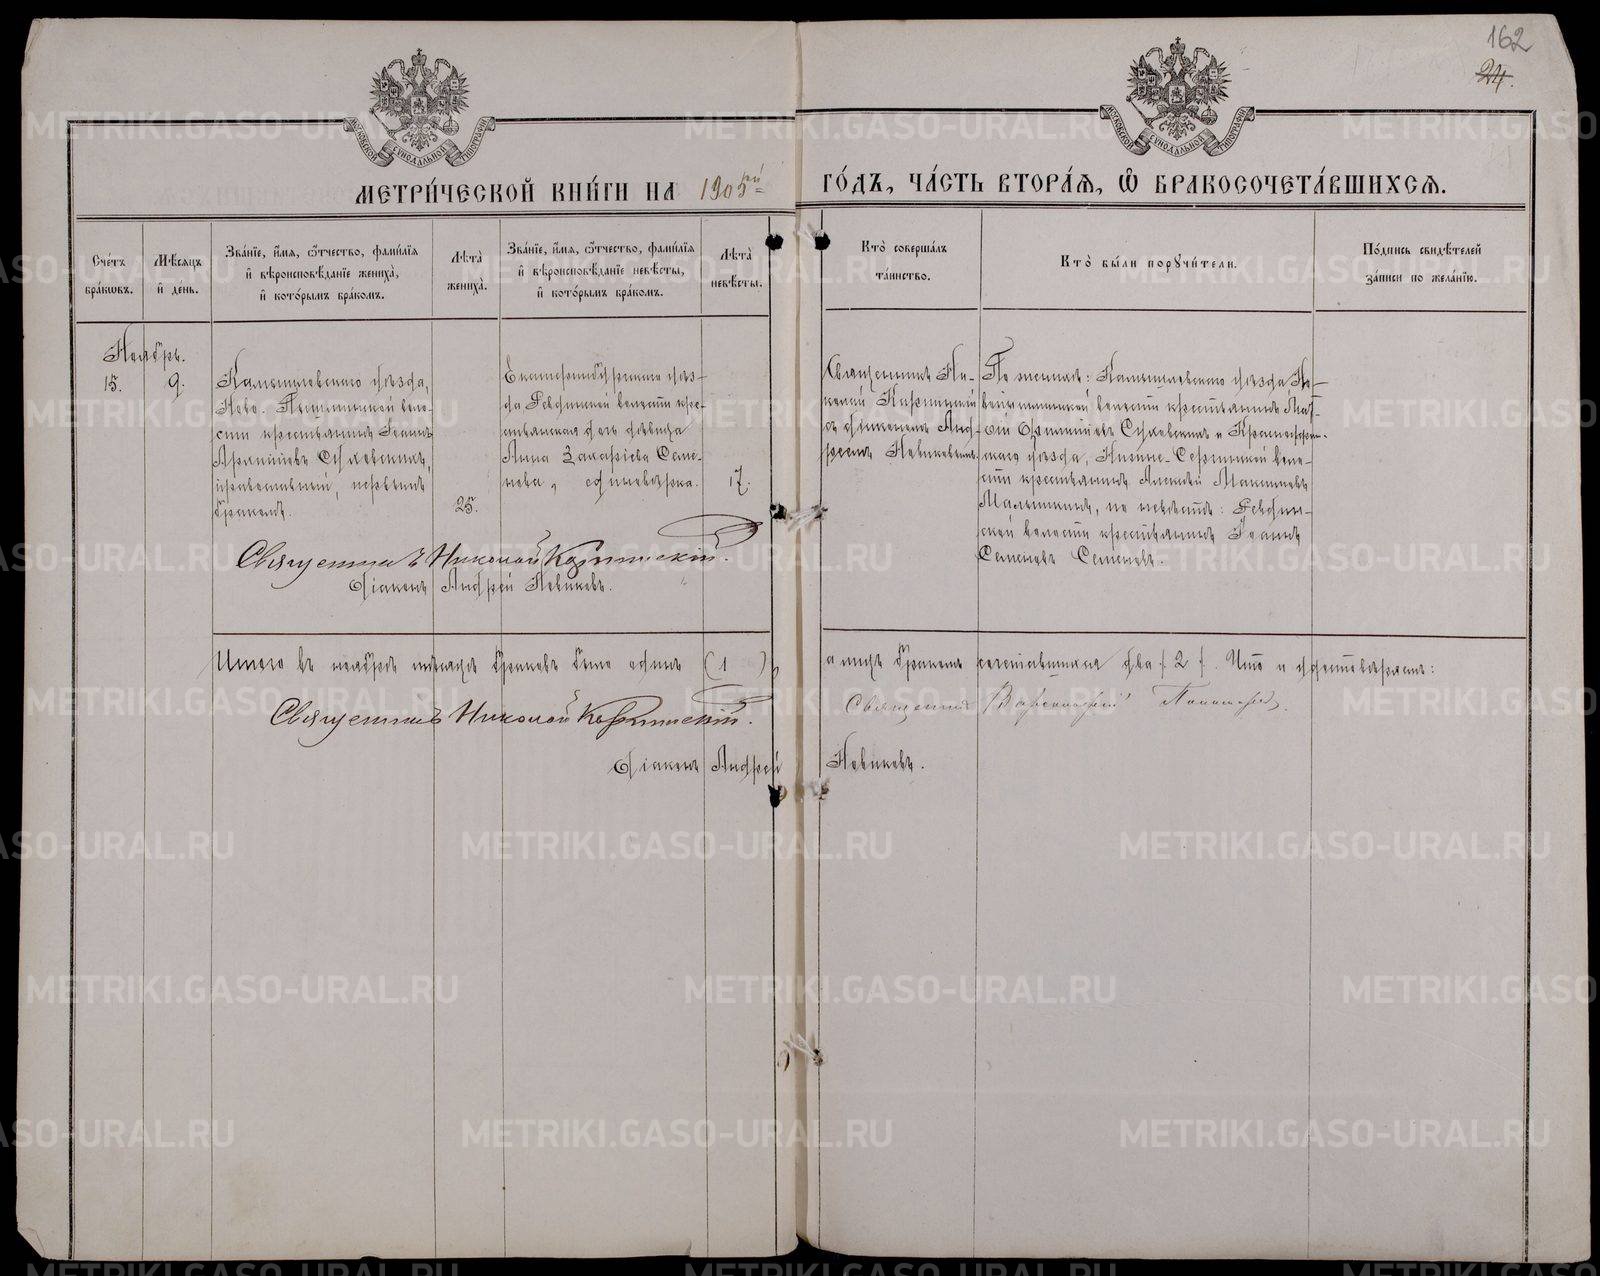 162
24.
МОСКОВСКОЙ СУНОДАЛЬНОЙ ТИПОГРАФІИ
МОСКОВСКОЙ СУНОДАЛЬНОЙ ТИПОГРАФІИ
МЕТРИ́ЧЕСКОЙ КНИ́ГИ НА 1905рый ГО́ДЪ, ЧА́СТЬ ВТОРА́Я, Ѡ БРАКОСОЧЕТА́ВШИХСЯ.
Сче́тъ бра́кѡвъ.
Мѣ́сяцъ и де́нь.
Зва́нїе, и́мя, ѻ́тчество, фами́лїя и вѣроисповѣ́данїе жениха̀, и кото́рымъ бра́комъ.
Лѣта̀ жениха̀.
Зва́нїе, и́мя, ѻ́тчество, фами́лїя и вѣроисповѣ́данїе невѣ́сты, и кото́рымъ бра́комъ.
Лѣта̀ невѣ́сты.
Кто̀ соверша́лъ та́инство.
Кто̀ бы́ли поручи́тели.
По́дпись свидѣ́телей за́писи по жела́нїю.
Ноябрь.
15.
9.
Камышловскаго уѣзда,
Ново-Пышминской воло-
сти крестьянинъ Іоаннъ
Архиповъ Суховскихъ,
православный, первымъ
бракомъ.
25.
Екатеринбургскаго уѣз-
да Ревдинской волости кре-
стьянская дочь дѣвица
Анна Захаріева Семе-
нова, единовѣрка.
17.
Священникъ Ни-
колай
съ діакономъ Анд-
реемъ Новиковымъ.
По женихѣ: Камышловскаго уѣзда Но-
вопышминской волости крестьянинъ
Суховскихъ и Красноуфим-
скаго уѣзда, Нижне-Сергинской воло-
сти крестьянинъ Алексѣй Максимовъ
Малышкинъ, по невѣстѣ: Ревдин-
ской волости крестьянинъ Іоаннъ
Семеновъ Семеновъ.
Священникъ Николай
Діаконъ Андрей Новиковъ.
Итого въ ноябрѣ мѣсяцѣ браковъ было одинъ (1), а лицъ бракомъ сочетавшихся два (2). Что и удостовѣряемъ:
Священникъ Николай
Священникъ
Діаконъ Андрей Новиковъ.
METRIKI.GASO-URAL.RU